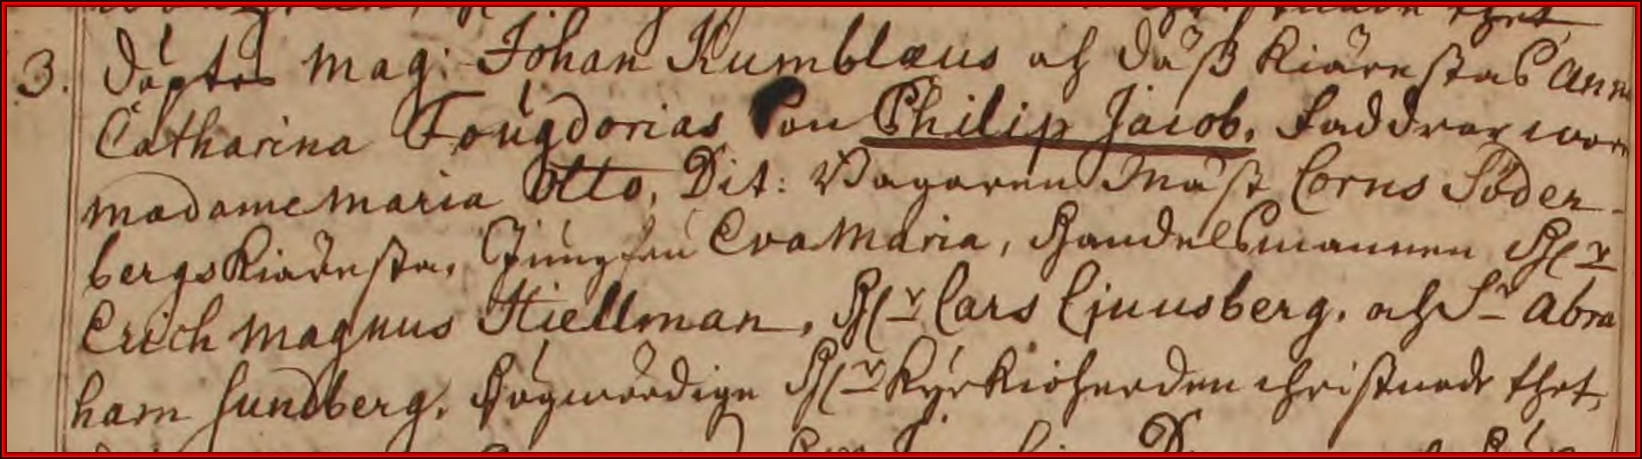 3. Döptes Mag: Johan Kumblæus och däß kiärestas Anna
Catharina Fougdonias Son Philip Jacob. Faddrar woro
Madame Maria Otto, Dit: Bagaren Mäst Corns Söder-
bergs Kiäresta, Jungfru Eva Maria, Handelsmannen Hr
Erich Magnus Hiellman, Hr Lars Ljuusberg, och Sr Abra
ham Sundberg. Högwördige Hr Kyrkioherden christnade thet.